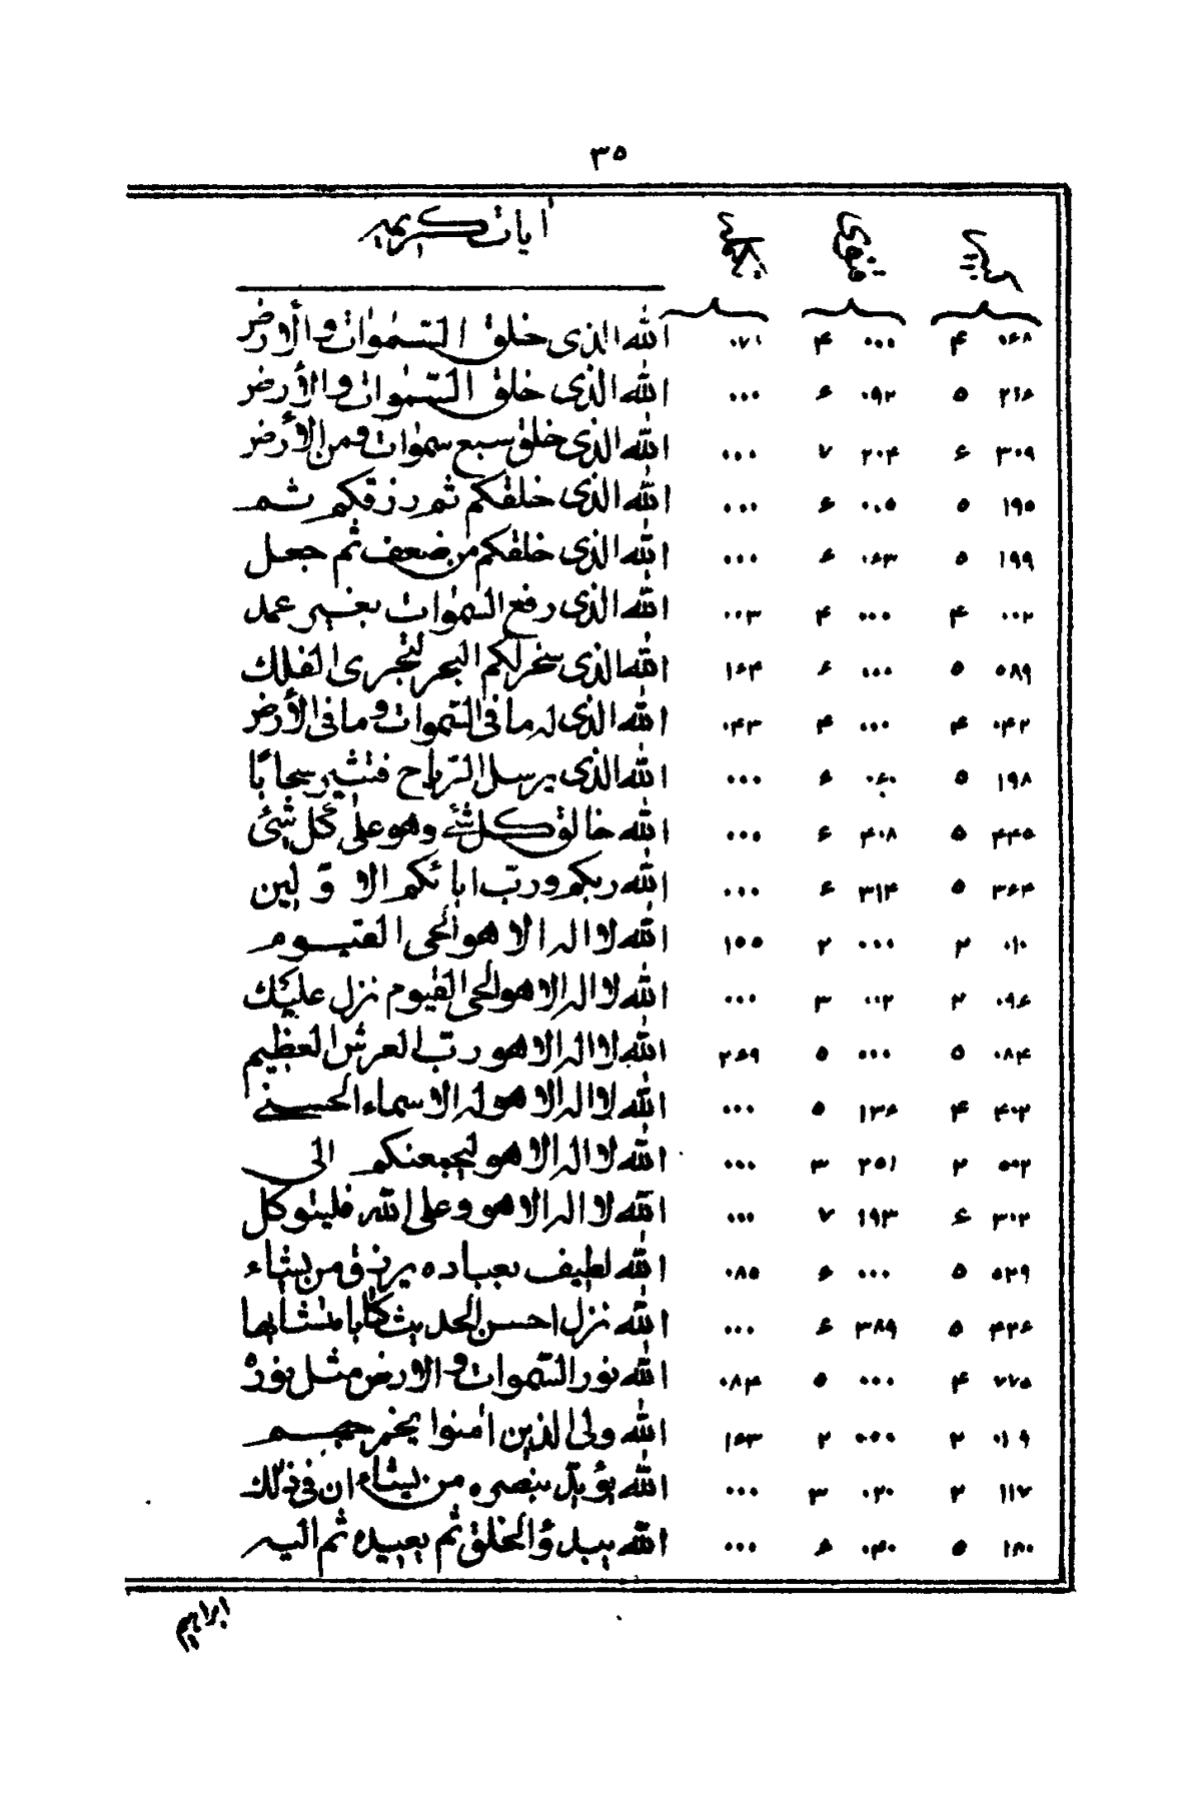 ۳۵
آیات کریمه
۰۶۸ ۴ ۰۰۰ ۴ ۰۷۱ الله الذى خلق السموات والارض
۲۱۶ ۵ ۰۹۲ ۶ ۰۰۰ الله الذى خلق السموات والأرض
۳۰۹ ۶ ۲۰۴ ۷ ۰۰۰ الله الذى خلق سبع سموات ومن الأرض
۱۹۵ ۵ ۰۰۵ ۶ ۰۰۰ الله الذى خلقكم ثم رزقكم ثم
۱۹۹ ۵ ۰۶۳ ۶ ۰۰۰ الله الذى خلقكم من ضعف ثم جعل
۰۰۲ ۴ ۰۰۰ ۴ ۰۰۳ الله الذى رفع السموات بغير عمد
۵۸۹ ۵ ۰۰۰ ۶ ۱۶۴ الله الذى سخر لكم البحر لتجرى الفلك
۰۴۲ ۴ ۰۰۰ ۴ ۰۴۳ الله الذى له ما فى السموات وما فى الأرض
۱۹۸ ۵ ۰۶۰ ۶ ۰۰۰ الله الذى يرسل الرياح فتثير سحابًا
۴۴۵ ۵ ۴۰۸ ۶ ۰۰۰ الله خالق كل شئ وهو على كل شئ
۳۶۴ ۵ ۳۱۴ ۶ ۰۰۰ الله ربكم ورب ابائكم الاولين
۰۱۰ ۲ ۰۰۰ ۲ ۱۵۵ الله لا اله الا هو الحى القيوم
۰۹۶ ۲ ۰۰۲ ۳ ۰۰۰ الله لا اله الا هو الحى القيوم نزل عليك
۰۸۴ ۵ ۰۰۰ ۵ ۲۶۹ الله لا اله الا هو رب العرش العظيم
۴۰۲ ۴ ۱۳۶ ۵ ۰۰۰ الله لا اله الا هو له الاسماء الحسنى
۵۰۲ ۲ ۲۵۱ ۳ ۰۰۰ الله لا اله الا هو ليجمعنكم الى
۳۰۲ ۶ ۱۹۳ ۷ ۰۰۰ الله لا اله الا هو وعلى الله فليتوكل
۵۲۹ ۵ ۰۰۰ ۶ ۰۸۵ الله لطيف بعباده يرزق من يشاء
۴۲۶ ۵ ۳۸۹ ۶ ۰۰۰ الله نزل احسن الحديث كتابا متشابها
۷۷۵ ۴ ۰۰۰ ۵ ۰۸۴ الله نور السموات والارض مثل نوره
۰۱۹ ۲ ۰۰۰ ۲ ۱۶۳ الله ولى الذين امنوا يخرجهم
۱۱۷ ۲ ۰۲۰ ۳ ۰۰۰ الله يؤيد بنصره من يشاء ان فى ذلك
۱۸۰ ۵ ۰۴۰ ۶ ۰۰۰ الله يبدؤ الخلق ثم يعيده ثم اليه
ابراهيم